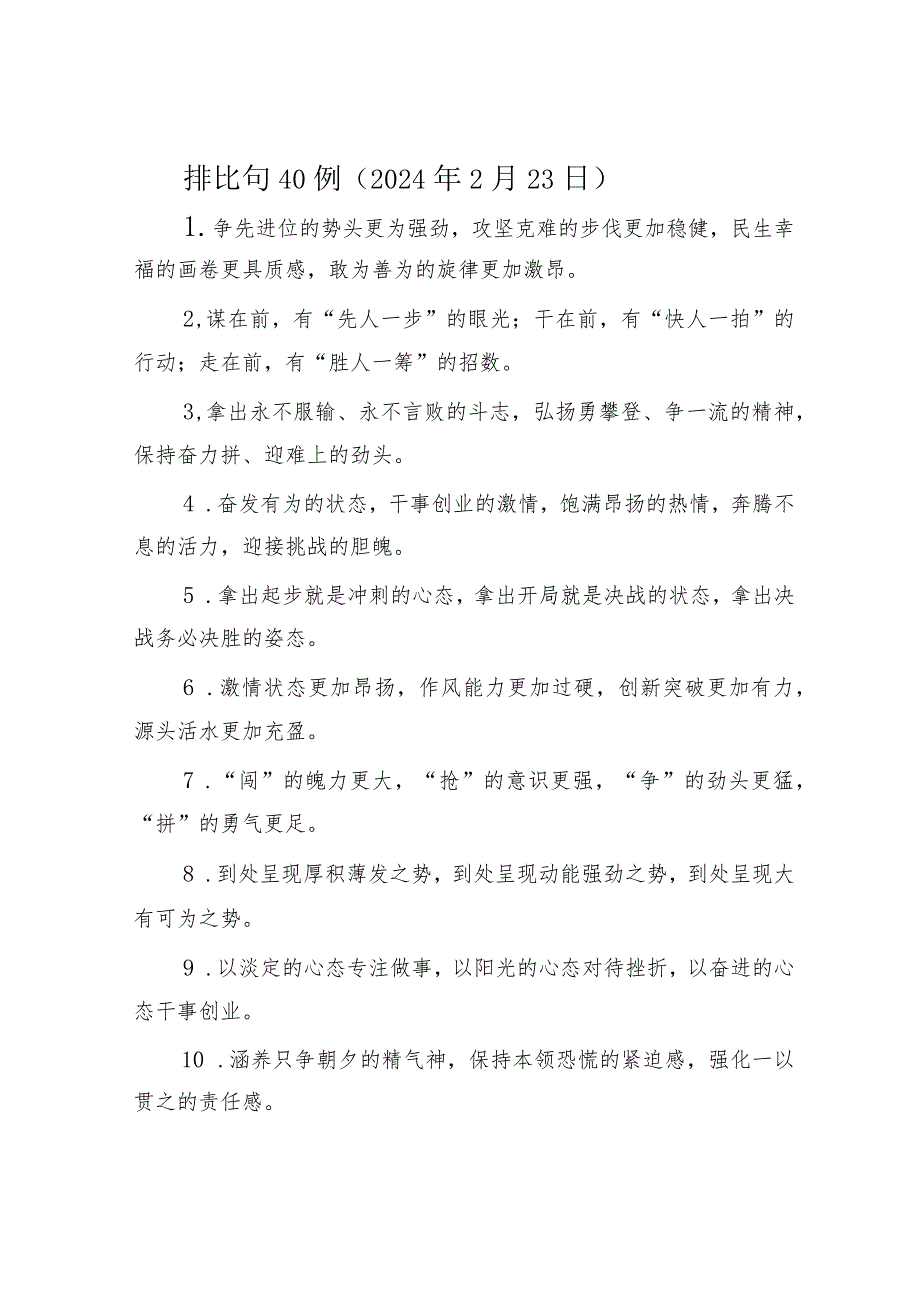 排比句40例（2024年2月23日）
1.争先进位的势头更为强劲，攻坚克难的步伐更加稳健，民生幸
福的画卷更具质感，敢为善为的旋律更加激昂。
2,谋在前，有“先人一步”的眼光；干在前，有“快人一拍”的
行动；走在前，有“胜人一筹”的招数。
3,拿出永不服输、永不言败的斗志，弘扬勇攀登、争一流的精神，
保持奋力拼、迎难上的劲头。
4 .奋发有为的状态，干事创业的激情，饱满昂扬的热情，奔腾不
息的活力，迎接挑战的胆魄。
5 .拿出起步就是冲刺的心态，拿出开局就是决战的状态，拿出决
战务必决胜的姿态。
6 .激情状态更加昂扬，作风能力更加过硬，创新突破更加有力，
源头活水更加充盈。
7 .“闯”的魄力更大，“抢”的意识更强，“争”的劲头更猛，
“拼”的勇气更足。
8 .到处呈现厚积薄发之势，到处呈现动能强劲之势，到处呈现大
有可为之势。
9 .以淡定的心态专注做事，以阳光的心态对待挫折，以奋进的心
态干事创业。
10 .涵养只争朝夕的精气神，保持本领恐慌的紧迫感，强化一以
贯之的责任感。